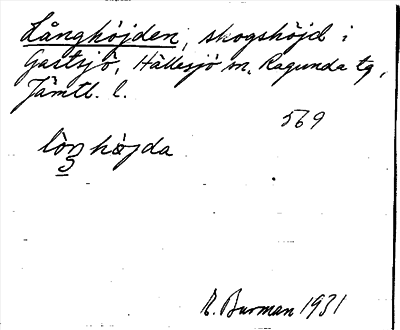 Långhöjden, skogshöjd i
Gastsjö, Hällesjö sn, Ragunda tg,
Jämtl. l.
569
lòŋhøjda
R. Burman 1931